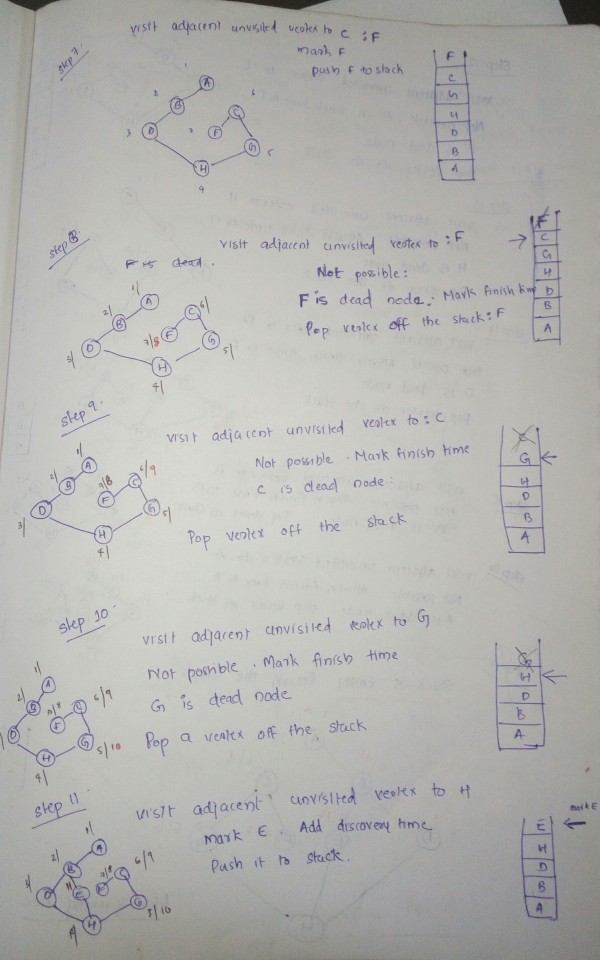 Step 7.
visit adjacent unvisited vertex to C : F
mark F
push F to stack
1
2
3
4
5
6
7
A
B
C
D
F
G
H
F
C
G
H
D
B
A
Step 8.
F is dead.
visit adjacent unvisited vertex to : F
Not possible :
F is dead node. Mark finish time
Pop vertex off the stack : F
1/
2/
3/
4/
5/
6/
7/8
A
B
C
D
F
G
H
F
C
G
H
D
B
A
Step 9.
visit adjacent unvisited vertex to : C
Not possible. Mark finish time
C is dead node :
Pop vertex off the stack
1/
2/
3/
4/
5/
6/9
7/8
A
B
C
D
F
G
H
C
G
H
D
B
A
Step 10.
visit adjacent unvisited vertex to G
Not possible. Mark finish time
G is dead node
Pop a vertex off the stack
1/
2/
4/
5/10
6/9
7/8
A
B
C
D
F
G
H
G
H
D
B
A
Step 11
visit adjacent unvisited vertex to H
mark E. Add discovery time
Push it to stack.
mark E
1/
2/
3/
4/
5/10
6/9
7/8
11
A
B
C
D
E
F
G
H
E
H
D
B
A